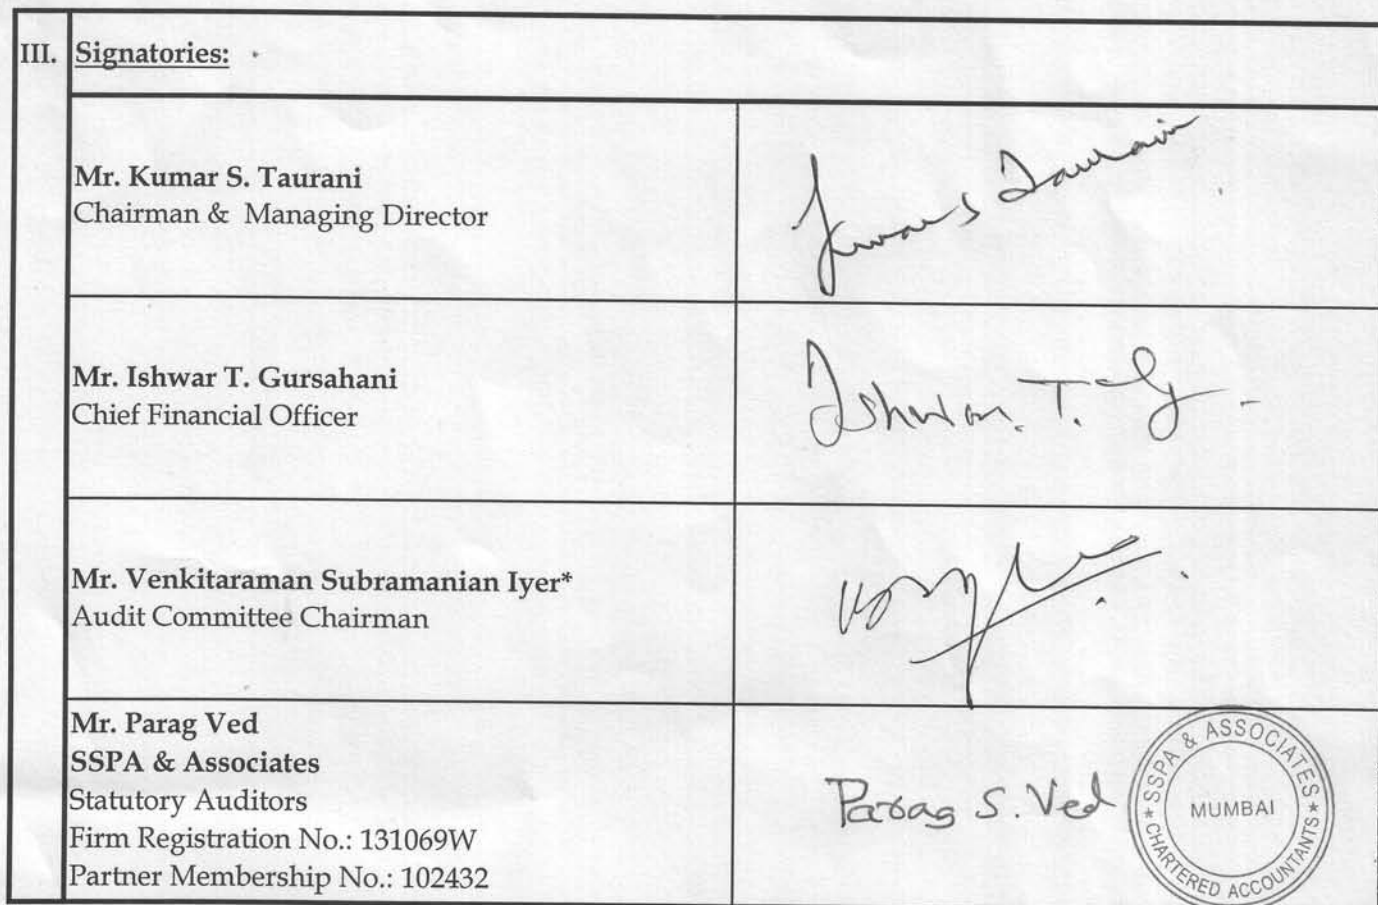 III. Signatories:
Mr. Kumar S. Taurani
Chairman & Managing Director
Kumar S Taurani
Mr. Ishwar T. Gursahani
Chief Financial Officer
Ishwar. T. G.
Mr. Venkitaraman Subramanian Iyer*
Audit Committee Chairman
Mr. Parag Ved
SSPA & Associates
Statutory Auditors
Firm Registration No.: 131069W
Partner Membership No.: 102432
Parag S. Ved
* SSPA & ASSOCIATES *
MUMBAI
CHARTERED ACCOUNTANTS